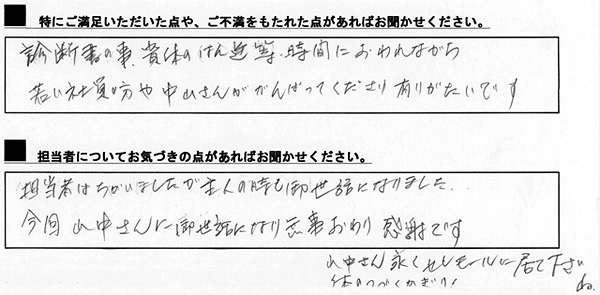 ■ 特にご満足いただいた点や、ご不満をもたれた点があればお聞かせください。
診断書の事、貴体のけん 等、時間におわれながら
若い社員の方や中山さんがかんばってくださり有りがたいです
■ 担当者についてお気づきの点があればお聞かせください。
担当者はちがいましたが主人の時も御世話になりました..
今回 山中さんに御世話になり無事おわり 感謝です
山中さん永くセレモールに居て下さいね.
体のつづくかぎり!